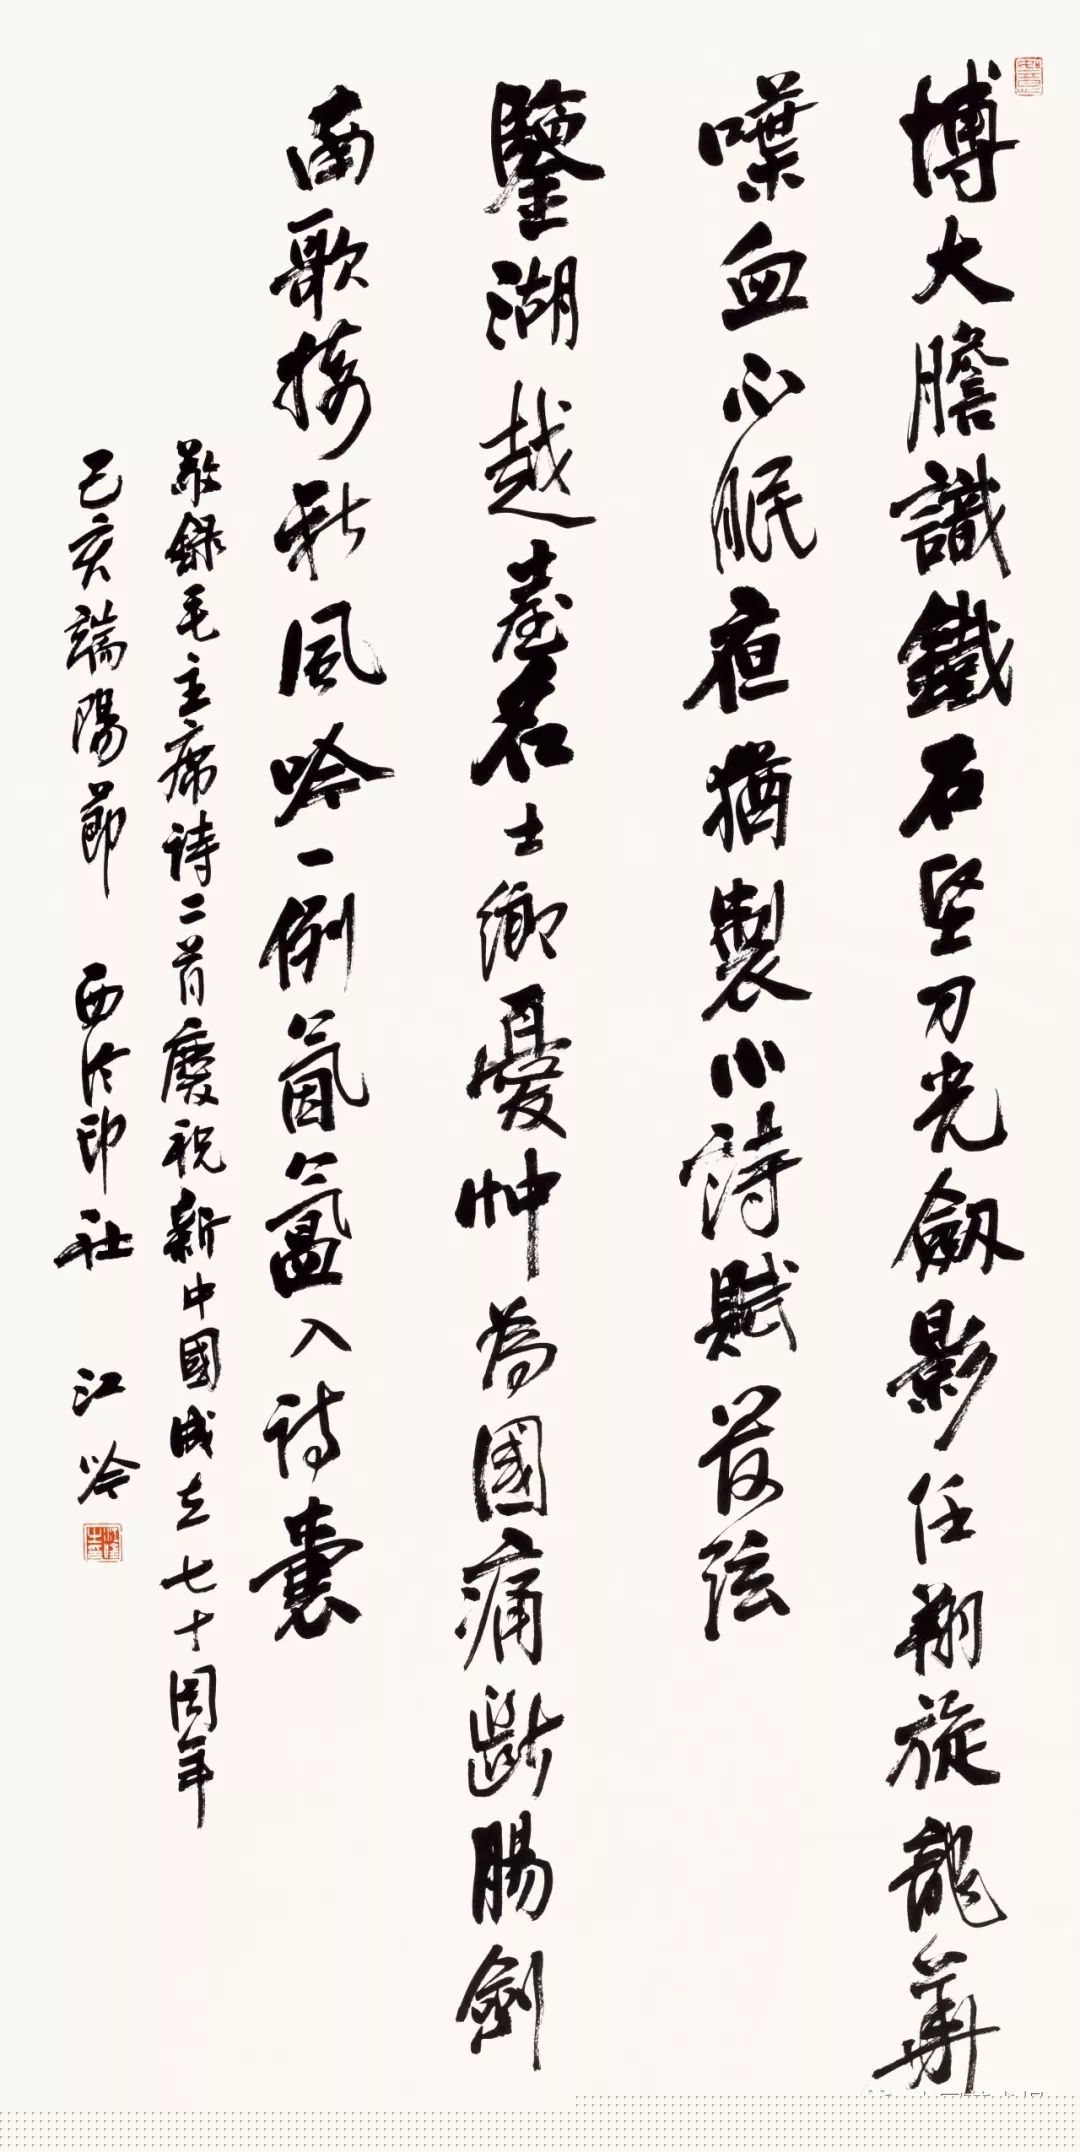 博大膽識鐵石堅刀光劔影任翔旋龍華
喋血不眠夜猶製小詩賦管弦
鑒湖越臺名士鄉憂忡為國痛斷腸劍
南歌接秋風吟一例氤氳入詩囊
敬錄毛主席詩二首慶祝新中國成立七十周年
己亥端陽節 西泠印社 江吟